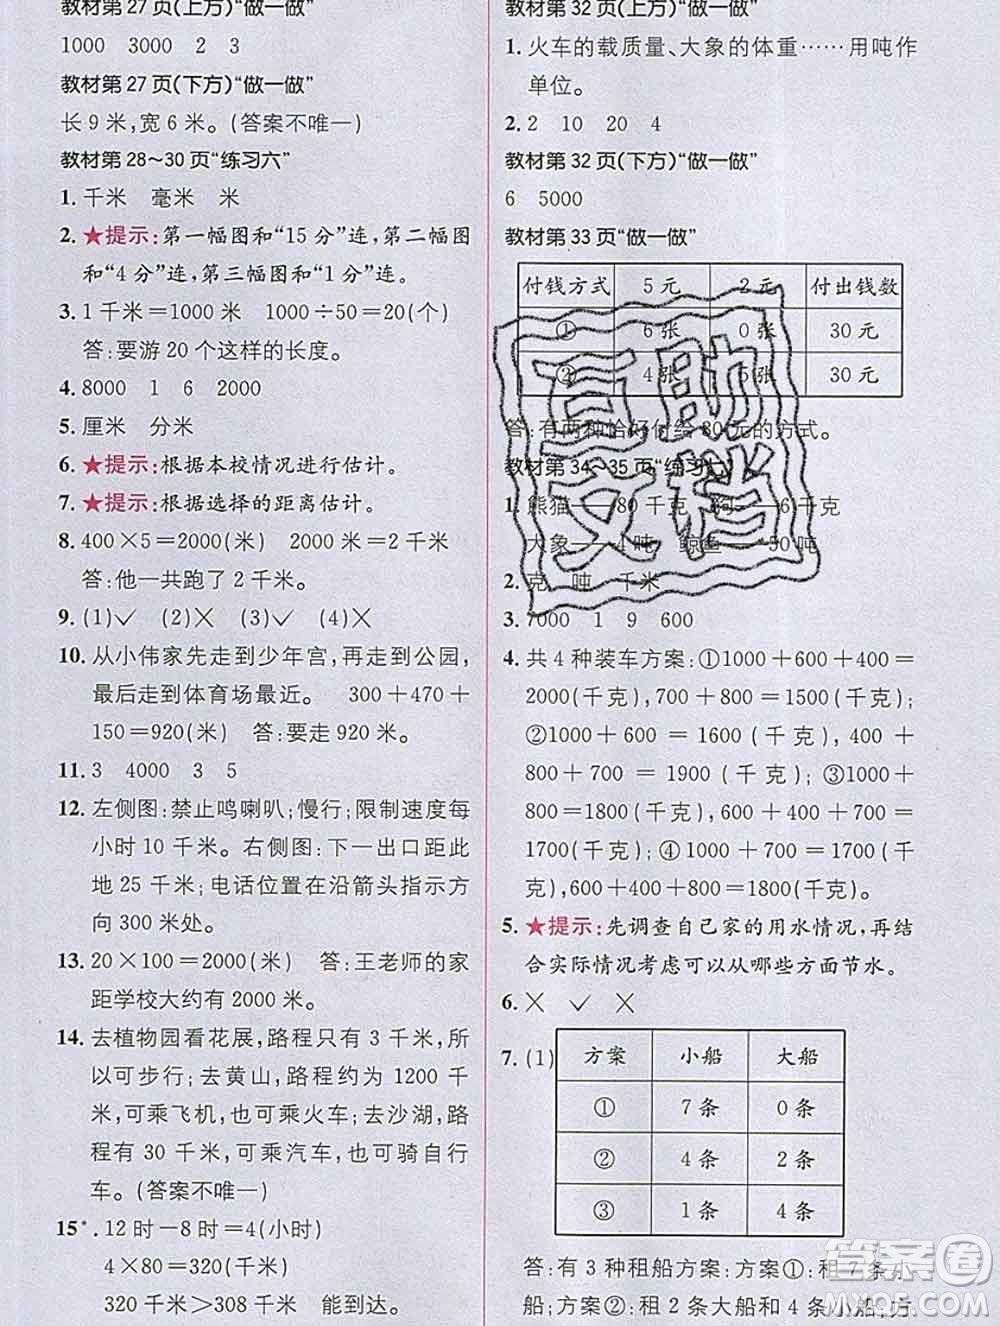 教材第27页(上方)“做一做”
1000 3000 2 3
教材第27页(下方)“做一做”
长9米,宽6米。(答案不唯一)
教材第28~30页“练习六”
1. 千米 毫米 米
2. ★提示:第一幅图和“15分”连,第二幅图
和“4分”连,第三幅图和“1分”连。
3. 1千米=1000米 1000÷50=20(个)
答:要游20个这样的长度。
4. 8000 1 6 2000
5. 厘米 分米
6. ★提示:根据本校情况进行估计。
7. ★提示:根据选择的距离估计。
8. 400×5=2000(米) 2000米=2千米
答:他一共跑了2千米。
9. (1)✓ (2)✕ (3)✓ (4)✕
10. 从小伟家先走到少年宫,再走到公园,
最后走到体育场最近。 300+470+
150=920(米) 答:要走920米。
11. 3 4000 3 5
12. 左侧图:禁止鸣喇叭;慢行;限制速度每
小时10千米。右侧图:下一出口距此
地25千米;电话位置在沿箭头指示方
向300米处。
13. 20×100=2000(米) 答:王老师的家
距学校大约有2000米。
14. 去植物园看花展,路程只有3千米,所
以可步行;去黄山,路程约为1200千
米,可乘飞机,也可乘火车;去沙湖,路
程有30千米,可乘汽车,也可骑自行
车。(答案不唯一)
15*. 12时-8时=4(小时)
4×80=320(千米)
320千米>308千米 能到达。
教材第32页(上方)“做一做”
1. 火车的载质量、大象的体重……用吨作
单位。
2. 2 10 20 4
教材第32页(下方)“做一做”
6 5000
教材第33页“做一做”
付钱方式 5元 2元 付出钱数
① 6张 0张 30元
② 4张 5张 30元
答:有两种恰好付给30元的方式。
教材第34~35页“练习七”
1. 熊猫——80千克 狗——6千克
大象——4吨 鲸鱼——50吨
2. 克 吨 千米
3. 7000 1 9 600
4. 共4种装车方案:①1000+600+400=
2000(千克),700+800=1500(千克);
②1000+600=1600(千克),400+
800+700=1900(千克);③1000+
800=1800(千克),700+600+400=
1700(千克);④1000+700=1700(千
克),600+400+800=1800(千克)
5. ★提示:先调查自己家的用水情况,再结
合实际情况考虑可以从哪些方面节水。
6. ✕ ✓ ✕
7. (1)
方案 小船 大船
① 7条 0条
② 4条 2条
③ 1条 4条
答:有3种租船方案:方案①:租7条小
船;方案②:租2条大船和4条小船;方
百助
文档
答案圈